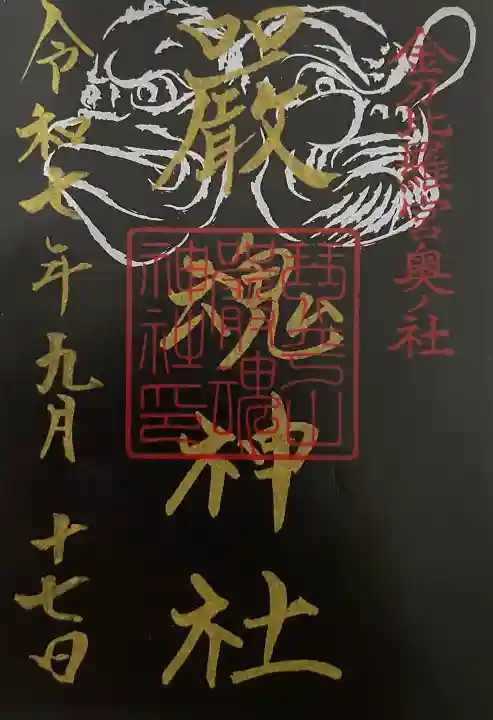 金刀比羅宮奥ノ社
嚴魂神社
琴平山
嚴魂
神社印
令和七年九月十七日